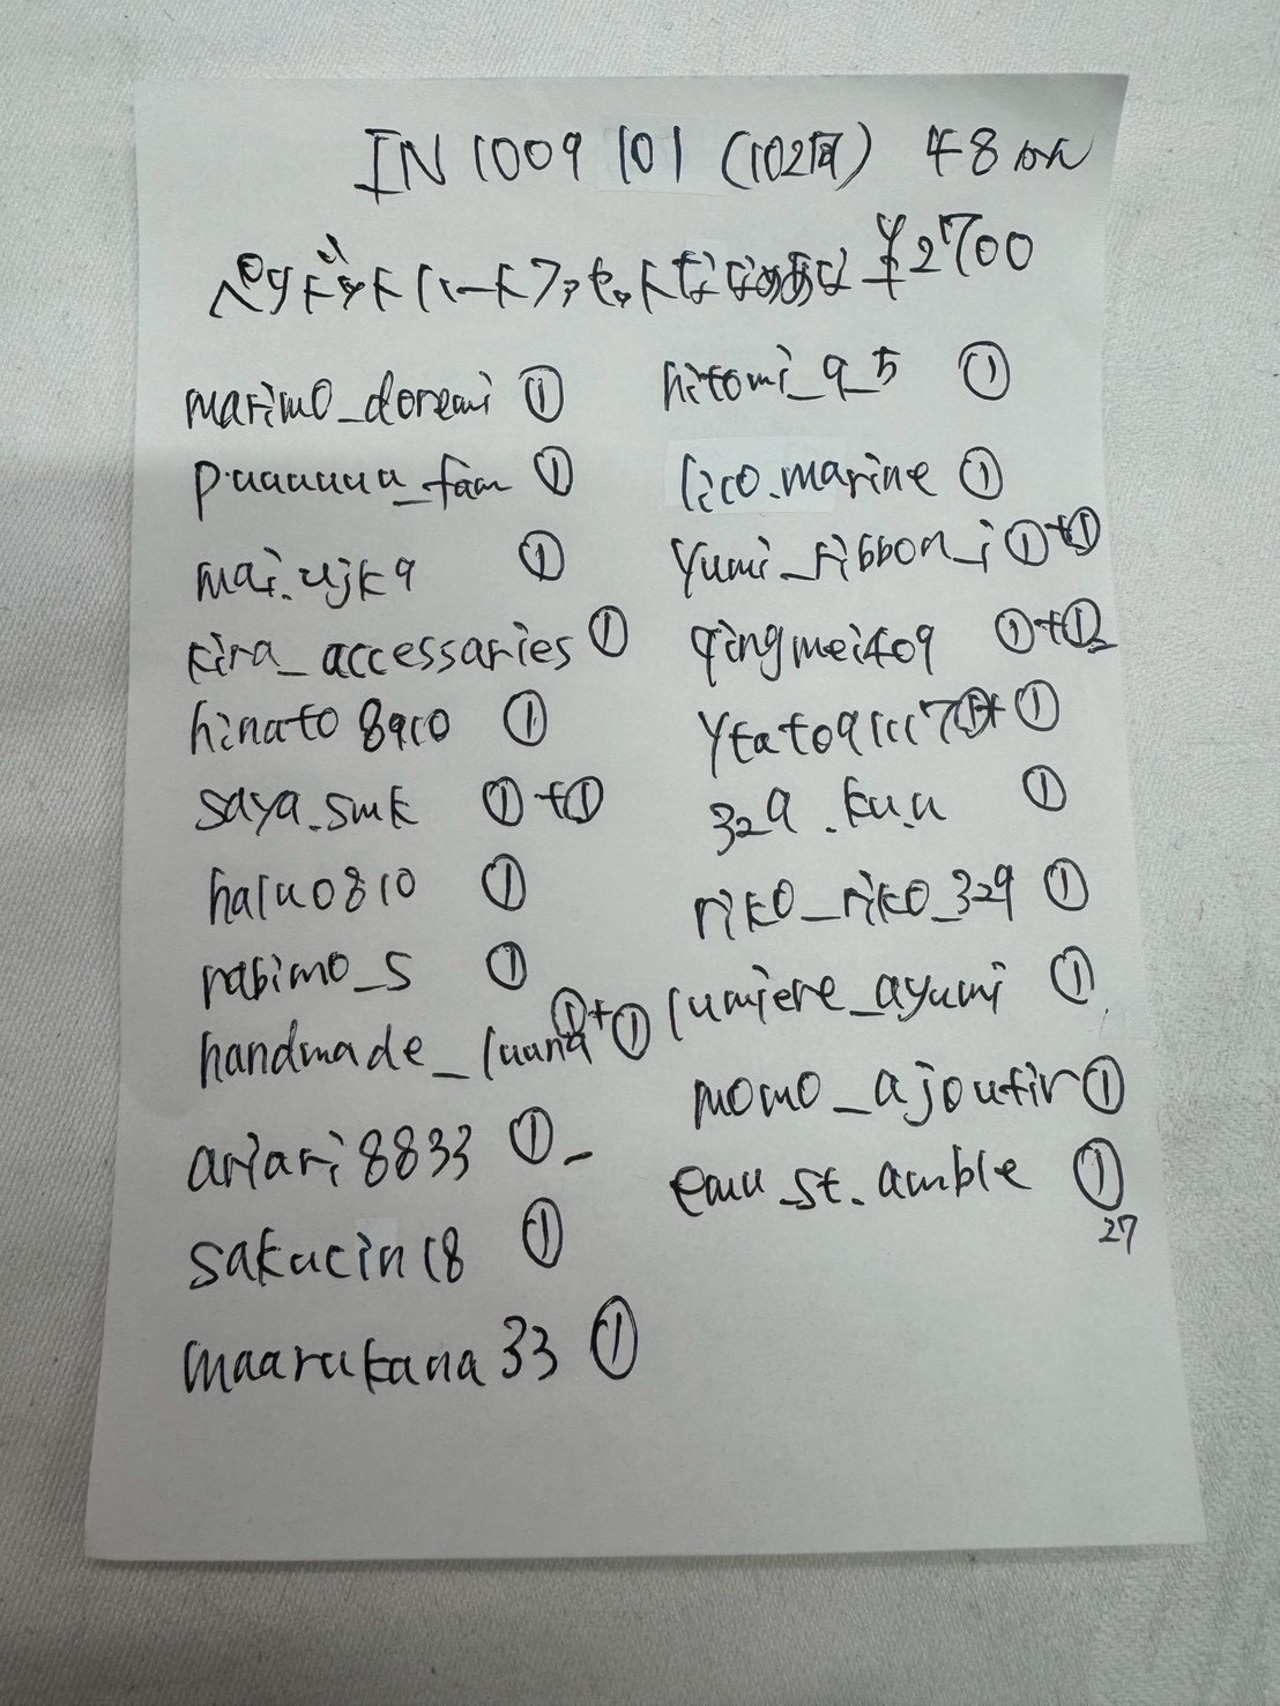 IN 1009 101 (102同) 48mm
ペリドットハートファセットななめあな ¥2700
marimo_doremi ①
p.uuuuuu_fam ①
mai.ujk9 ①
kira_accessaries ①
hinato8910 ①
saya.smk ①+①
halu0810 ①
rabimo_s ①
handmade_luana ①+①
ariari8833 ①
sakucin18 ①
maarukana33 ①
hitomi_9_5 ①
lico.marine ①
yumi_ribbon_i ①+①
qingmei409 ①+①2
ytato91117 ①+①
329.ku.u ①
riko_riko_329 ①
lumiere_ayumi ①
momo_ajoutir ①
emu_st.amble ①
27